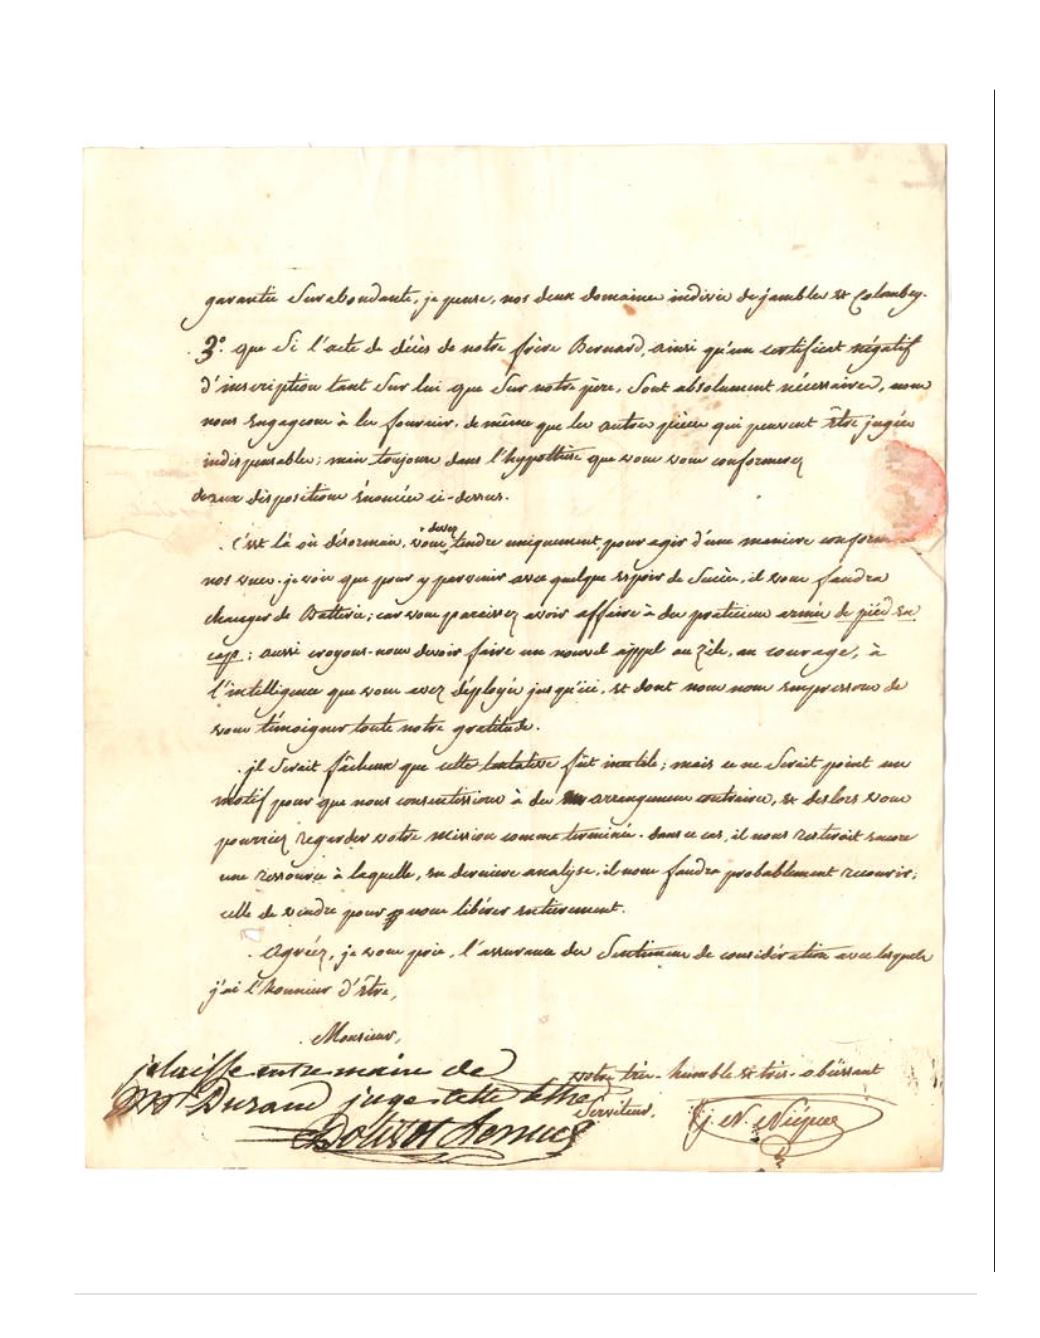 garantie surabondante, je pense, nos deux domaines indivis de jambles & Colombey.
3.° que si l'acte de décès de notre frère Bernard, ainsi qu'un certificat négatif
d'inscription tant sur lui que sur notre père, sont absolument nécessaires, nous
nous engageons à les fournir, de même que les autres pièces qui peuvent être jugées
indispensables; mais toujours dans l'hypothèse que vous vous conformerez
aux dispositions énoncées ci-dessus.
C'est là où désormais, vous devez tendre uniquement, pour agir d'une manière conforme
nos vues. je vois que pour y parvenir avec quelque espoir de succès, il vous faudra
changer de Batterie; car vous paraissez avoir affaire à des praticiens armés de pied en
cap; aussi croyons-nous devoir faire un nouvel appel au zèle, au courage, à
l'intelligence que vous avez déployés jusqu'ici, et dont nous nous empressons de
vous témoigner toute notre gratitude.
jl serait fâcheux que cette tentative fût inutile; mais ce ne serait point un
motif pour que nous consentissions à des arrangemens contraires, & des lors vous
pourriez regarder votre mission comme terminée. dans ce cas, il nous resteroit encore
une ressource à laquelle, en derniere analyse, il nous faudra probablement recourir;
celle de vendre pour nous libérer entierement.
Agréez, je vous prie, l'assurance des sentimens de considération avec lesquels
j'ai l'honneur d'être,
Monsieur,
votre très-humble & très-obéissant
serviteur,
j. N. Niépce
je laisse entre mains de
Mr Durand juge cette lettre